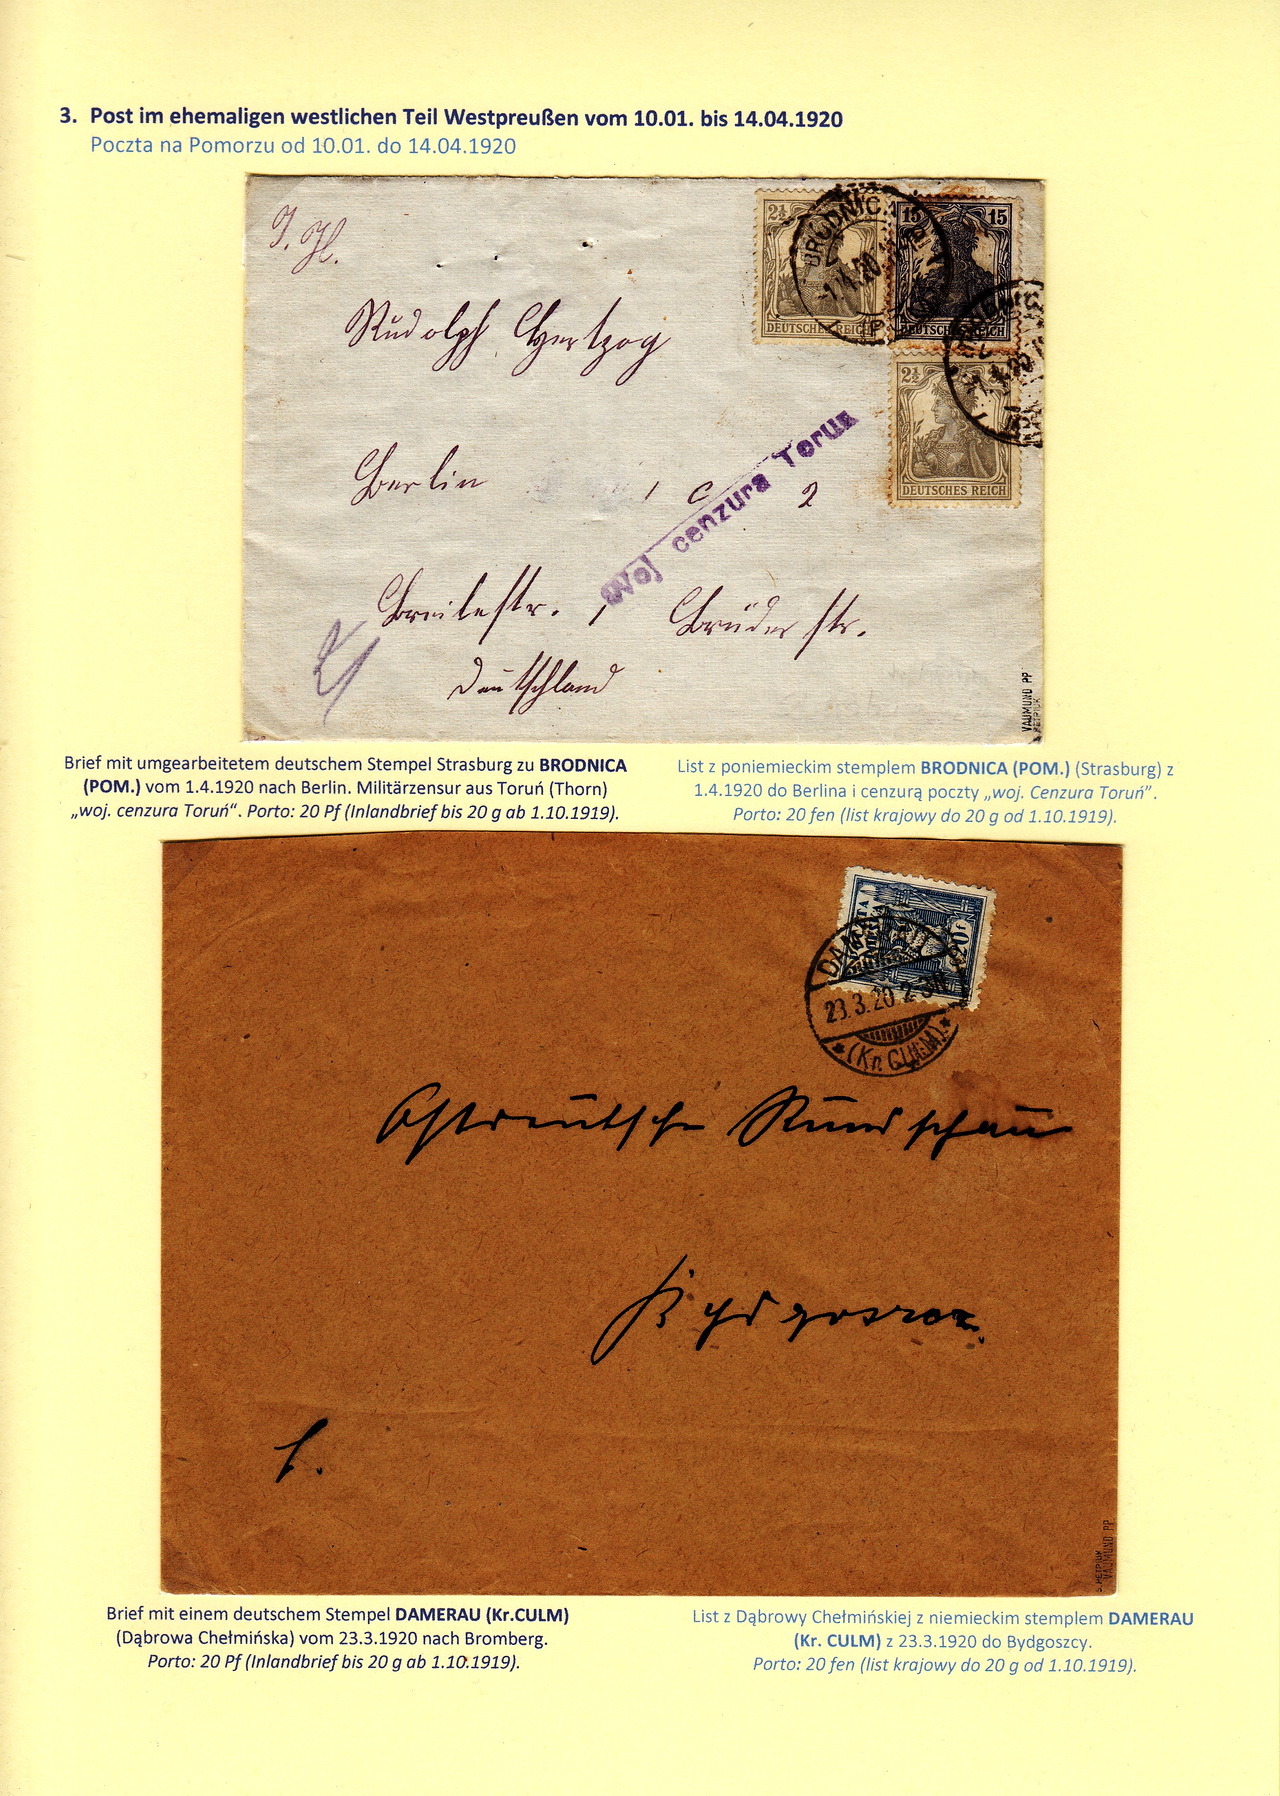 3. Post im ehemaligen westlichen Teil Westpreußen vom 10.01. bis 14.04.1920
Poczta na Pomorzu od 10.01. do 14.04.1920
J. H.
Rudolph Hertzog
Berlin C 2
Breitestr. Brüderstr.
Deutschland
Woj cenzura Toruń
2½
15 15
DEUTSCHES REICH
DEUTSCHES REICH
2½
DEUTSCHES REICH
BRODNICA
-1.4.20
VAUMUND PP
S. PETRIUK
Brief mit umgearbeitetem deutschem Stempel Strasburg zu BRODNICA
(POM.) vom 1.4.1920 nach Berlin. Militärzensur aus Toruń (Thorn)
„woj. cenzura Toruń“. Porto: 20 Pf (Inlandbrief bis 20 g ab 1.10.1919).
List z poniemieckim stemplem BRODNICA (POM.) (Strasburg) z
1.4.1920 do Berlina i cenzurą poczty „woj. Cenzura Toruń”.
Porto: 20 fen (list krajowy do 20 g od 1.10.1919).
POCZTA
20 F
23.3.20 2-3N
(Kr. CULM)
Ostdeutsche Rundschau
Bydgoszcz.
S. PETRIUK
VAUMUND PP
Brief mit einem deutschem Stempel DAMERAU (Kr.CULM)
(Dąbrowa Chełmińska) vom 23.3.1920 nach Bromberg.
Porto: 20 Pf (Inlandbrief bis 20 g ab 1.10.1919).
List z Dąbrowy Chełmińskiej z niemieckim stemplem DAMERAU
(Kr. CULM) z 23.3.1920 do Bydgoszcy.
Porto: 20 fen (list krajowy do 20 g od 1.10.1919).